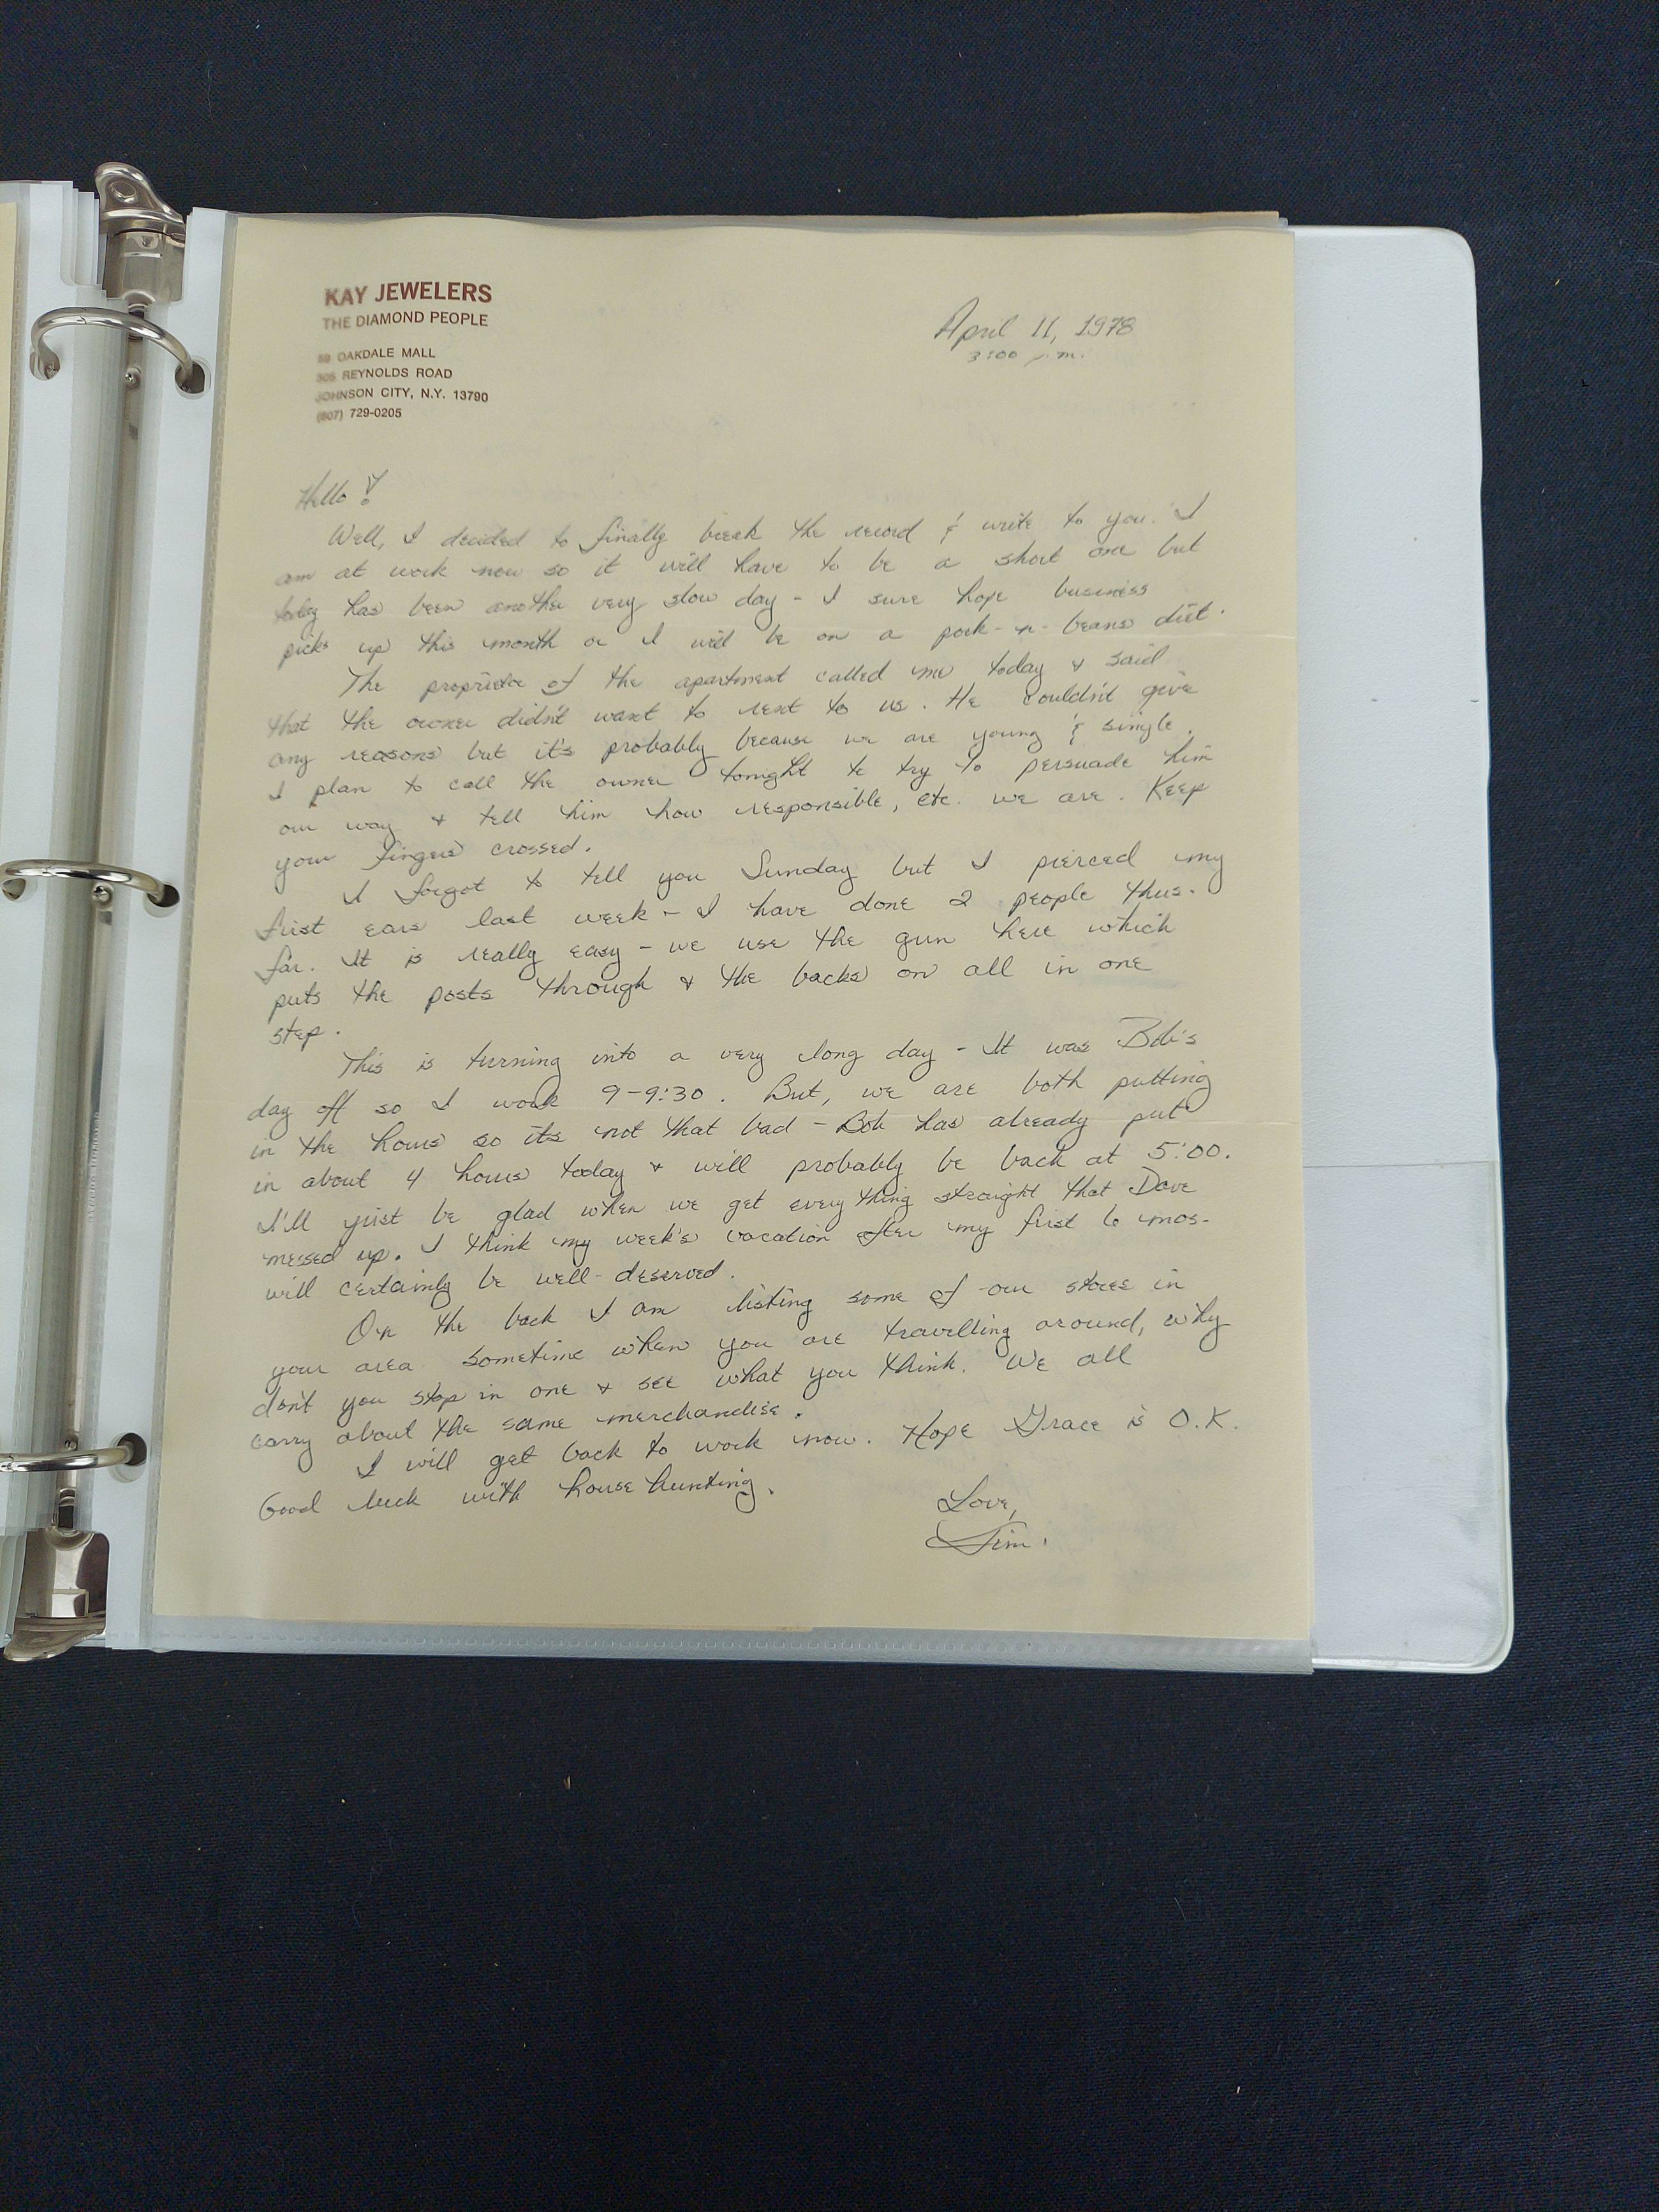 KAY JEWELERS
THE DIAMOND PEOPLE
59 OAKDALE MALL
305 REYNOLDS ROAD
JOHNSON CITY, N.Y. 13790
(607) 729-0205
April 11, 1978
3:00 p.m.
Hello!
Well, I decided to finally break the record & write to you. I
am at work now so it will have to be a short one but
today has been another very slow day - I sure hope business
picks up this month or I will be on a pork-n-beans diet.
The proprietor of the apartment called me today & said
that the owner didn't want to rent to us. He couldn't give
any reasons but it's probably because we are young & single.
I plan to call the owner tonight to try to persuade him
our way & tell him how responsible, etc. we are. Keep
your fingers crossed.
I forgot to tell you Sunday but I pierced my
first ears last week - I have done 2 people thus-
far. It is really easy - we use the gun here which
puts the posts through & the backs on all in one
step.
This is turning into a very long day - It was Bob's
day off so I work 9-9:30. But, we are both putting
in the hours so its not that bad - Bob has already put
in about 4 hours today & will probably be back at 5:00.
I'll just be glad when we get everything straight that Dave
messed up. I think my week's vacation after my first 6 mos.
will certainly be well-deserved.
On the back I am listing some of our stores in
your area. Sometime when you are travelling around, why
don't you stop in one & see what you think. We all
carry about the same merchandise.
I will get back to work now. Hope Grace is O.K.
Good luck with house hunting.
Love,
Jim.